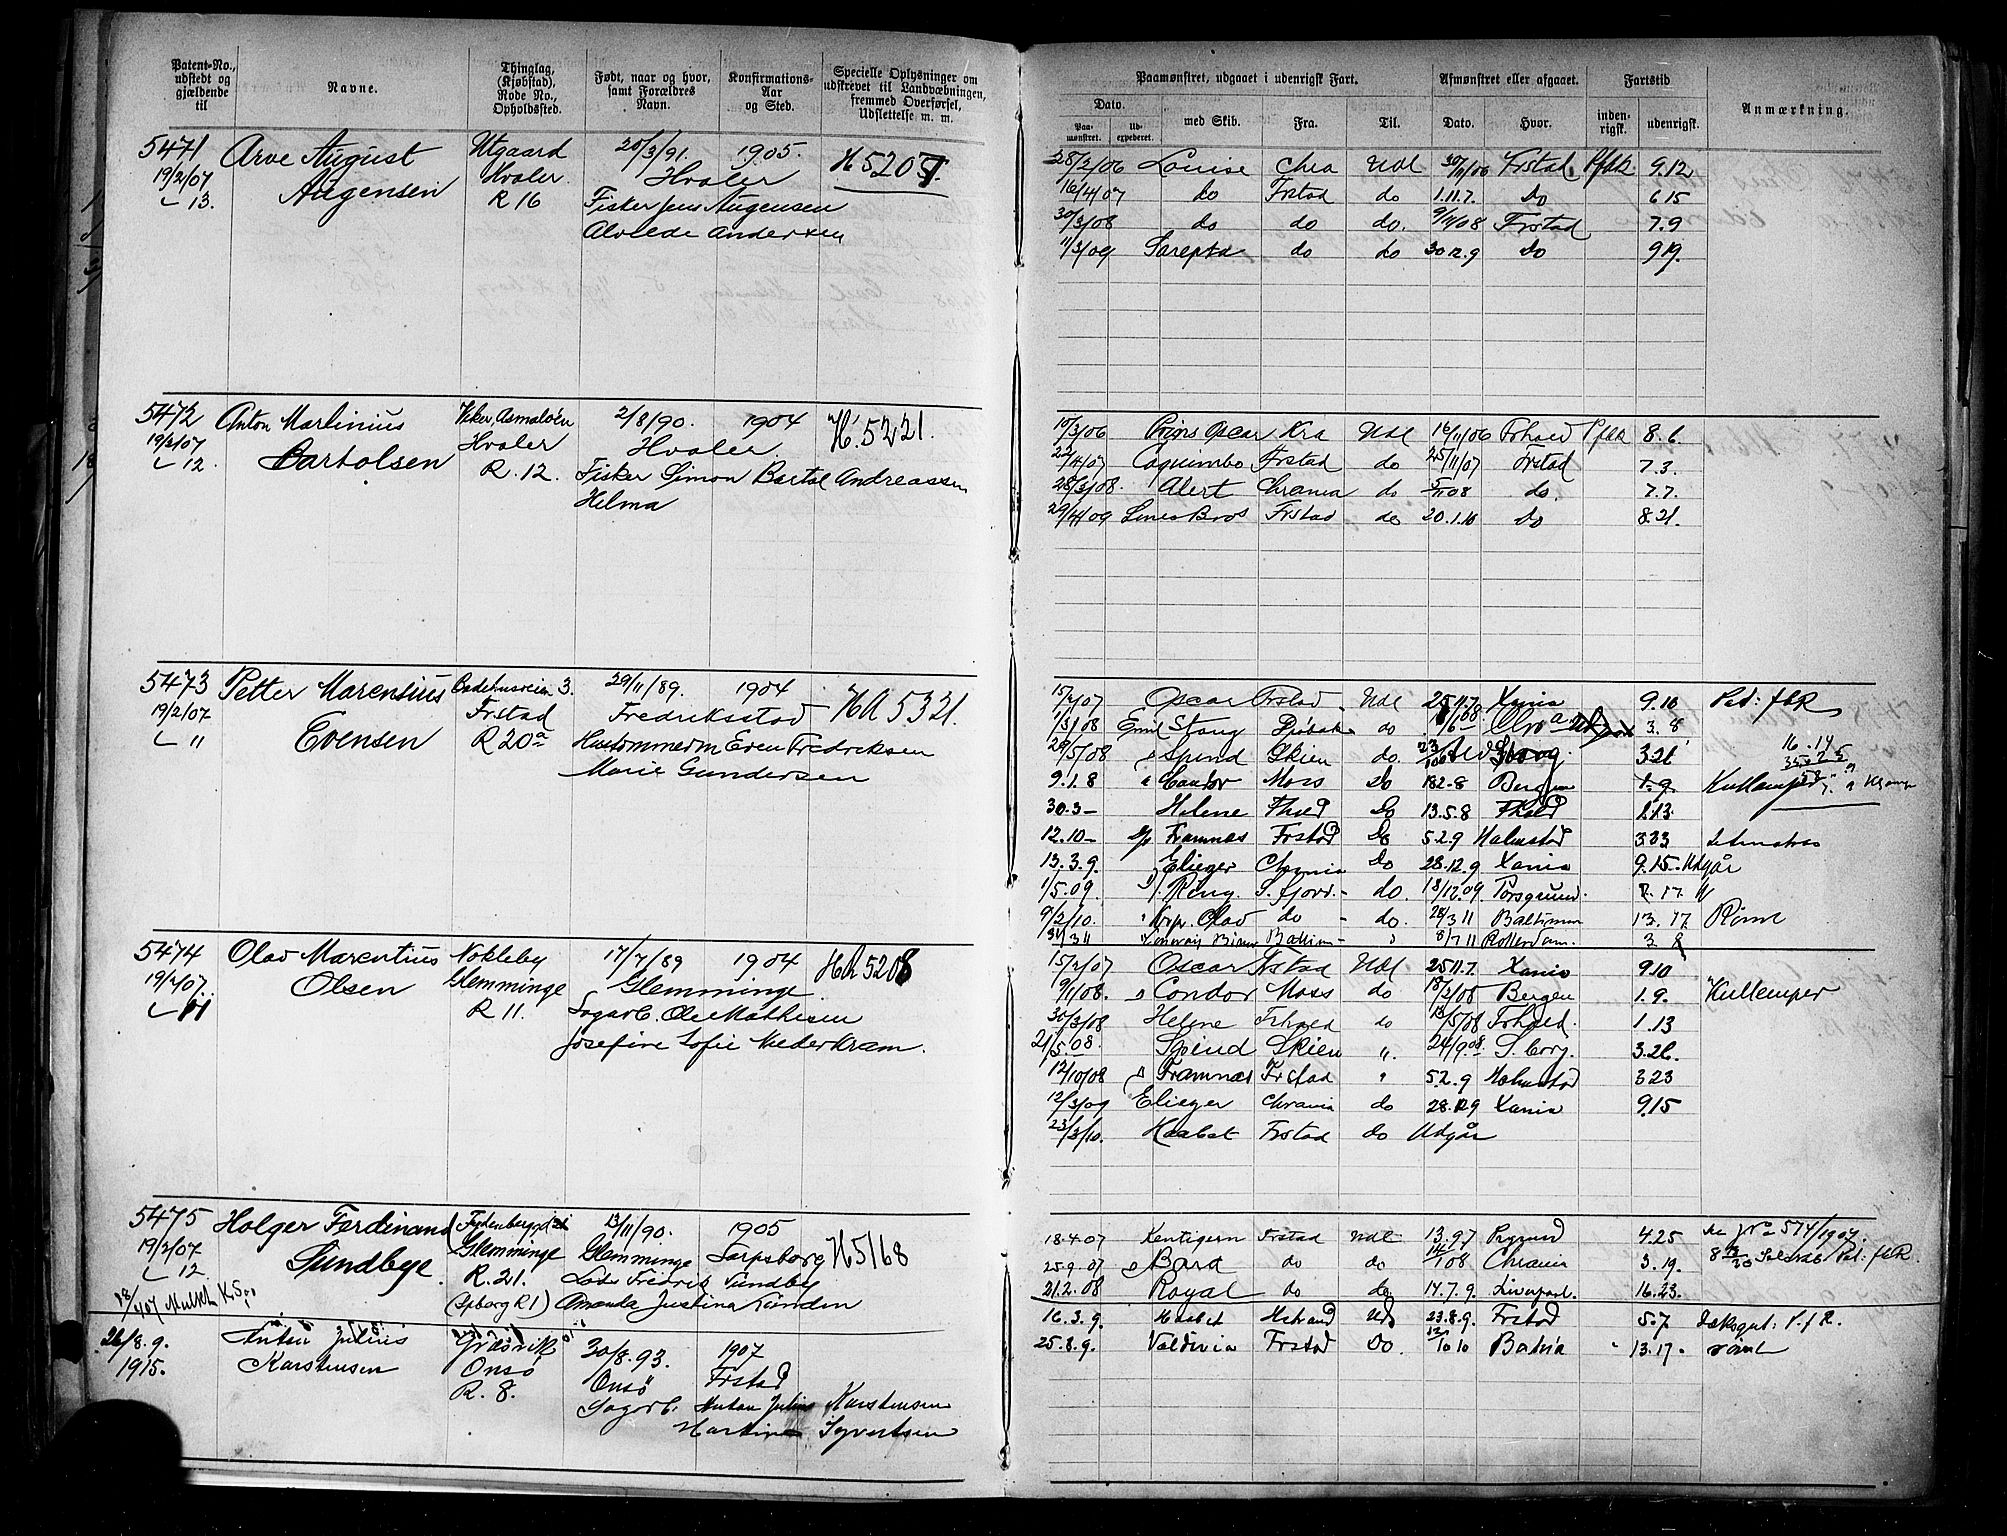 Patent-No., udstedt og gjældende til
Navne.
Thinglag, (Kjøbstad), Rode No., Opholdssted.
Født, naar og hvor, samt Forældres Navn.
Konfirmations-Aar og Sted.
Specielle Oplysninger om udskrevet til Landvæbningen, fremmed Overførsel, Udslettelse m. m.
5471 Arve August Utgaard 20/3/91. 1905. H 5207.
19/2/07 Augensen Hvaler Hvaler
13. R 16 Fisker Jens Augensen
Alvilde Andersen
5472 Anton Martinius Viker, Asmaløen 2/8/90. 1904 H. 5221.
19/2/07 Bartolsen Hvaler Hvaler
12. R. 12. Fisker Simon Bartol Andreassen
Helma
5473 Petter Marensius Badehusveien 3. 29/11/89. 1904 HA 5321.
19/2/07 Evensen Frstad Fredriksstad
11 R 20a Hustømmerm Even Fredriksen
Marie Gundersen
5474 Olav Marentius Nokleby 17/7/89 1904 HA 5208
19/2/07. Olsen Glemminge Glemminge
11 R 11. Sagarb. Ole Mathisen
Josefine Sofie Nederkram.
5475 Holger Ferdinand 13/11/90. 1905 H5168
19/2/07 Sundbye Glemminge Glemminge Sarpsborg
12. R. 21. Fredrik Sundby
(Spborg R1) Amanda Justina
26/8.9. Anton Julius Græsvik 30/8.93. 1907
1915. Karstensen Onsø Onsø Frstad
R. 8. Sagarb. Anton Julius Karstensen
Syvertsen
Paamønstret, udgaaet i udenrigsk Fart.
Afmønstret eller afgaaet.
Fartstid
Anmærkning.
Dato.
Paa-mønstret.
Ud-expederet.
med Skib.
Fra.
Til.
Dato.
Hvor.
inden-rigsk.
udenrigsk.
28/2/06 Louise Chra Udl 30/11/06 Frstad 9.12
16/4/07 do Frstad do 1.11.7. Do 6 15
30/3/08 do do do. 9/11/08 Frstad 7.9
11/3/09 Sarepta do do 30 12.9 Do 9 19.
10/3/06 Prins Oscar Kra Udl 16/11/06 Frhald 8.6.
22/4/07 Coquimbo Frstad do 25/11/07 Frstad 7.3.
28/3/08. Alert Chrania do 5/11 08 do. 7.7.
29/4/09 Frstad do 20.1.10 Do 8.21.
15/2/07 Oscar Frstad Udl 25.11.7. Xania 9.10
1/3/08 Emil Stang do 3.8
29/5/08 Spind Skien do. 3 26
9.1.8 Condor Moss Do 18 2-8 Bergen 1.9
30.3- Helene Fhald Do 13.5.8 Fhald 1.13
12.10- Framnæs Frstad Do 5.2.9 Halmstad 3 23
13.3.9. Elieser Chrania Do 28.12.9 Xania 9.15. Udgår
1/5.09. Ring S. fjord. - do. 18/12.09 Porsgrund.
9/2/10. Olav do - do. 28/3 11 Baltimore 13. 17. Rømt
31/3 11 8/7 11 Rotterdam. 3 8
15/2/07 Oscar Frstad Udl 25 11.7. Xania 9 10
9/1/08. Condor Moss do 18/2/08 Bergen 1.9. Kullemper
30/3/08 Helene Frhald do 13/5/08 Frhald. 1.13
21/5.08. Spind Skien ". 24/9.08 S. borg. 3.26.
12/10/08 Framnæs Frstad " 5.2.9 Halmstad 3 23
12/3/09 Elieser Chrania do 28.12.9 Xania 9.15
23/3/10. Haabet Frstad do Udgår
18 4 07 Kentigern Frstad Udl 13.9.7 4.25 574/1907.
25.9.07 Bard do do 14/1 08 Chrania 3.19.
21.2.08 Royal do do 14.7.9. Liverpool. 16.23.
16.3.9. Haabet Ud 23.8.9. Frstad 5.7
25.8.9. Valdivia Frstad Do. Batavia 13.17. rømt